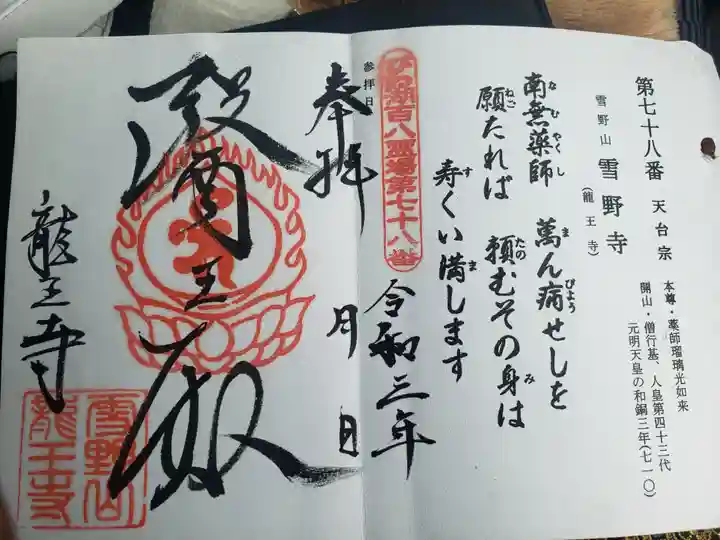 第七十八番 天台宗
本尊・薬師瑠璃光如来
開山・僧行基、人皇第四十三代
元明天皇の和銅三年(七一〇)
雪野山 雪野寺
(龍王寺)
南無薬師 萬ん病せしを
なむやくし まんびょう
願たれば 頼むその身は
ねご たの み
寿くい満します
す ま
参拝日
びわ湖百八霊場第七十八番
令和三年
奉拝 月 日
医王殿
龍王寺
雪野山
龍王寺